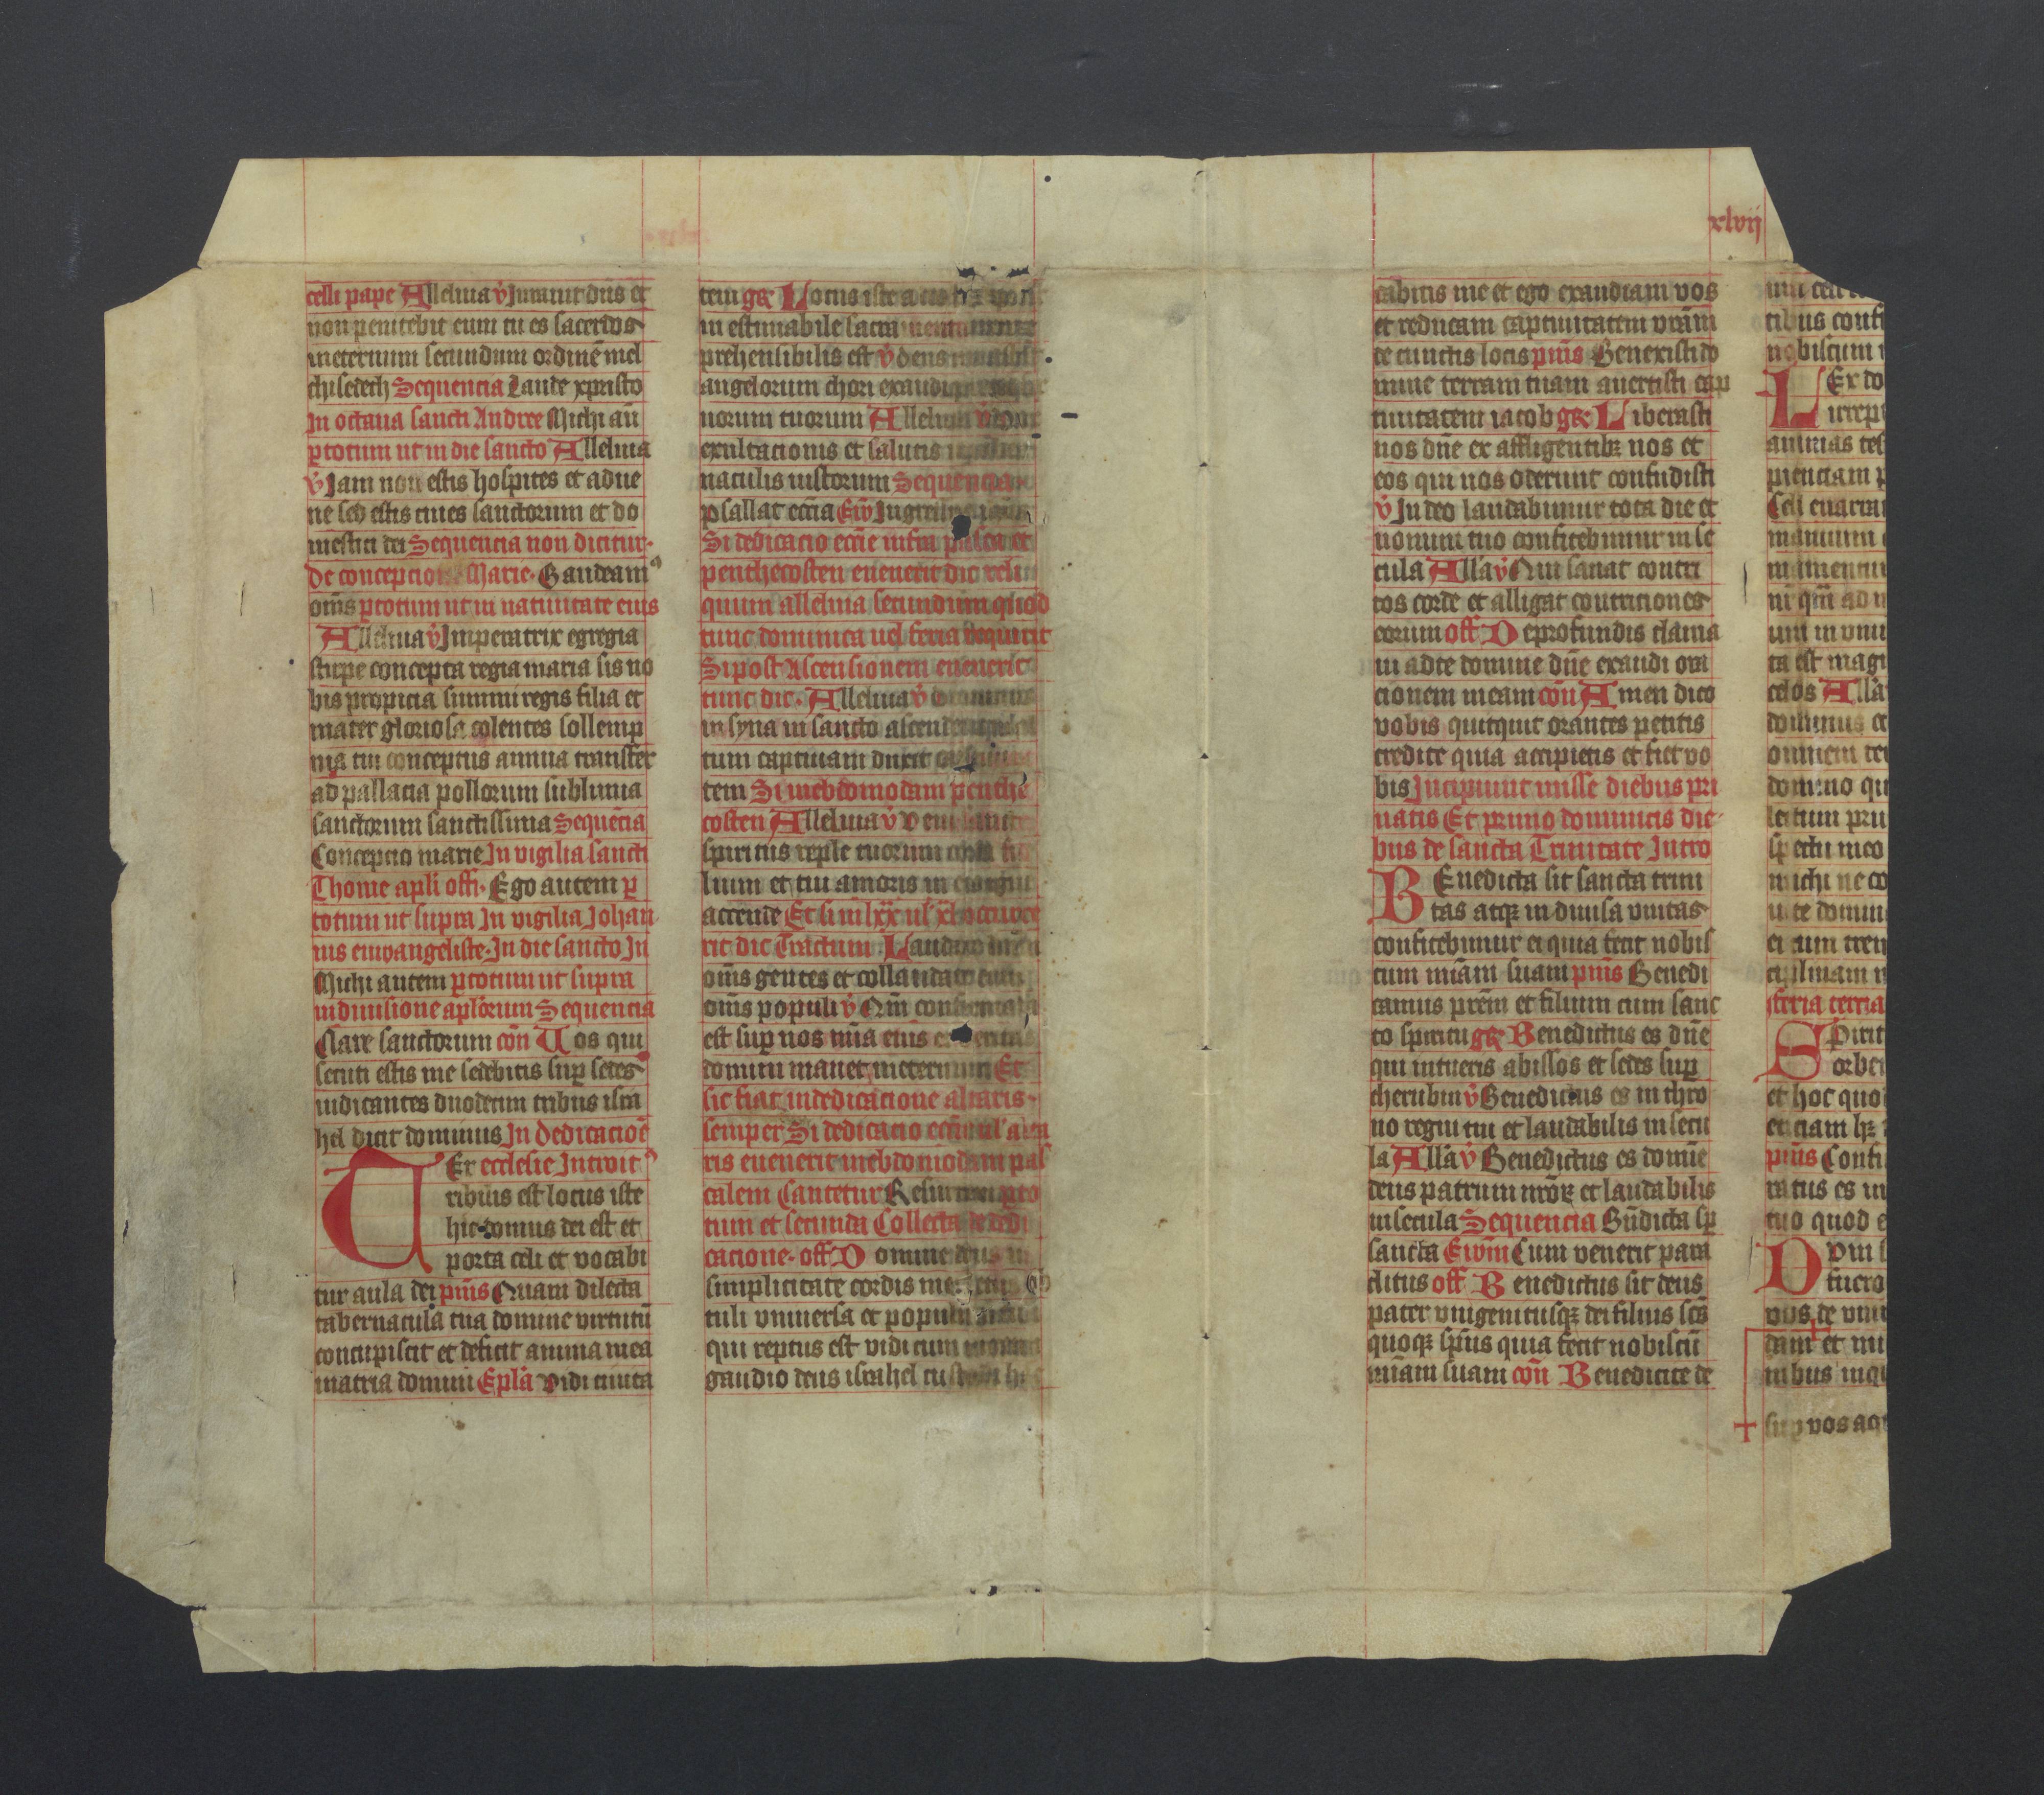 xlvij
celli pape Alleluia v̄ Iurauit dn̄s et
non penitebit eum tu es sacerdos
ineternum secundum ordinē mel
chisedech Sequencia Laude xpristo
In octaua sancti Andree Michi aū
ꝑtotum ut in die sancto Alleluia
v̄ Iam non estis hospites et adue
ne sed estis ciues sanctorum et do
mestici dei Sequencia non dicitur.
De concepcione Marie. Gaudeamꝰ
om̄s ꝑtotum ut in natiuitate eius
Alleluia v̄ Imperatrix egregia
stirpe concepta regia maria sis no
bis propicia summi regis filia et
mater gloriosa colentes sollemp
nia tui conceptus annua transfer
ad pallacia pollorum sublimia
sanctorum sanctissima Sequēcia
Concepcio marie In vigilia sancti
Thome apl̄i off̄. Ego autem ꝑ
totum ut supra In vigilia Johan
nis ewangeliste. In die sancto In
Michi autem ꝑtotum ut supra
indiuisione apl̄orum Sequencia
Clare sanctorum cōn Uos qui
secuti estis me sedebitis suꝑ sedes
iudicantes duodecim tribus isra
hel dicit dominus In Dedicacioē
Er ecclesie Introitꝰ
ribilis est locus iste
hic domus dei est et
porta celi et vocabi
tur aula dei pm̄s Quam dilecta
tabernacula tua domine virtutū
concupiscit et deficit anima mea
inatria domini Epl̄a Vidi ciuita
tem gr̄ Locus iste a deo
in estimabile sacramentum
prehensibilis est v̄ deus
angelorum chori exaudi
uorum tuorum Alleluia v̄
exultacionis et salutis
naculis iustorum Sequencia
psallat ecc̄ia Ew̄ Ingressus
Si dedicacio ecc̄ie infra pasca et
penthecosten euenerit dic relin
quum alleluia secundum quod
tunc dominica uel feria requirit
Si post Ascensionem euenerit
tunc dic. Alleluia v̄ dominus
in syna in sancto ascendens
tum captiuam duxit
tem Si inebdomodam penthe
costen Alleluia v̄ Veni sancte
spiritus reple tuorum corda fide
lium et tui amoris in eis ignem
accende Et si in lxx ul̄ xl occurre
rit dic Tractum. Laudate
om̄s gentes et collaudate eum
om̄s populi v̄ Qm̄ confirmata
est suꝑ nos mia eius et veritas
domini manet ineternum Et
sic fiat indedicacione altaris.
semper Si dedicacio ecc̄ie ul̄ alta
ris euenerit inebdomodam pas
calem Cantetur Resurrexi ꝑto
tum et secunda Collecta de dedi
cacione. off̄ Domine deus in
simplicitate cordis mei letus ob
tuli vniuersa et populum
qui reptus est vidi cum
gaudio deus israhel custodi
cabitis me et ego exaudiam vos
et reducam captiuitatem vrām
de cunctis locis pm̄s Benexisti do
mine terram tuam auertisti cap
tiuitatem iacob gr̄ Liberasti
nos dn̄e ex affligentibꝫ nos et
eos qui nos oderunt confudisti
v̄ In deo laudabimur tota die et
nomini tuo confitebimur in se
cula All̄a v̄ Qui sanat contri
tos corde et alligat contriciones
eorum off̄ De profundis clama
ui adte domine dn̄e exaudi ora
cionem meam cōn Amen dico
vobis quitquit orantes petitis
credite quia accipietis et fiet vo
bis Incipiunt misse diebus pri
uatis Et primo dominicis die
bus de sancta Trinitate Intro
BEnedicta sit sancta trini
tas atqꝫ indiuisa vnitas
confitebimur ei quia fecit nobis
cum mīam suam pm̄s Benedi
camus prēm et filium cum sanc
to spiritu gr̄ Benedictus es dn̄e
qui intueris abissos et sedes suꝑ
cherubin v̄ Benedictus es in thro
no regni tui et laudabilis in secu
la All̄a v̄ Benedictus es domīe
deus patrum nrōꝝ et laudabilis
in secula Sequencia Bn̄dicta sꝑ
sancta Ewm̄ Cum venerit para
clitus off̄ Benedictus sit deus
pater vnigenitusqꝫ dei filius sc̄s
quoqꝫ sp̄us quia fecit nobiscū
mīam suam cōn Benedicite de
tibus confi
nobiscum
LEx do
irrepr
animas
pienciam p
Celi enarra
manuum
ta est magi
celos All̄a
dominus
omnem
domino qu
spectu meo
michi ne co
u te domin
ei cum
feria tercia
SPirit
orbē
et hoc quo
enciam
pm̄s Confi
ratus es in
tuo quod
DVm s
fuero
vos de
dam et mu
nibus inqu
suꝑ vos aqu